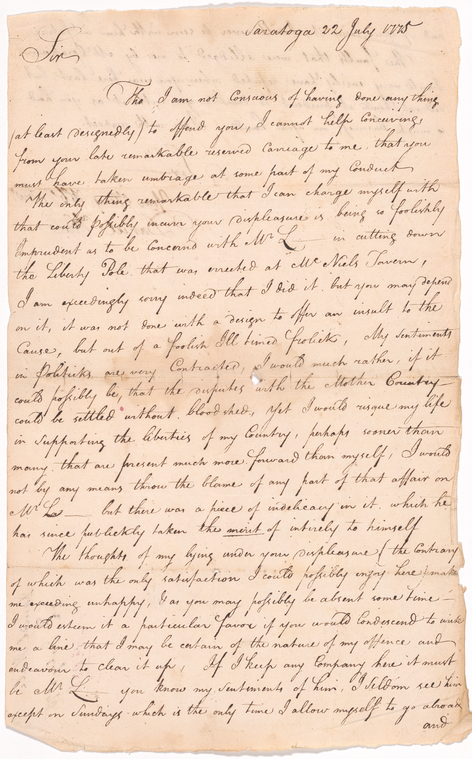 Saratoga 22 July 1775
Sir
Tho I am not Conscious of having done any thing
(at least designedly) to offend you, I cannot help Conceiving,
from your late remarkable reserved Carriage to me, that you
must have taken umbrage at some part of my Conduct
The only thing remarkable that I can charge myself with
that could possibly incurr your displeasure is being so foolishly
Imprudent as to be Concernd with Mr. L— in cutting down
the Liberty Pole that was errected at Mc Niels Tavern,
I am exceedingly sorry indeed that I did it. but you may depend
on it, it was not done with a design to offer an insult to the
Cause, but out of a foolish Ill timed frolick, My Sentiments
in Politicks are very Contracted, I would much rather, if it
could possibly be, that the disputes with the Mother Country
could be settled without bloodshed, yet I would risque my life
in supporting the liberties of my Country, perhaps sooner than
many that are present much more forward than myself, I would
not by any means throw the blame of any part of that affair on
Mr. L— but there was a piece of indelicacy in it, which he
has since publickly taken the merit of intirely to himself
The thoughts of my lying under your displeasure (the Contrary
of which was the only satisfaction I could possibly enjoy here) make
me exceeding unhappy, & as you may possibly be absent some time—
I would esteem it a particular favor if you would Condescend to write
me a line, that I may be certain of the nature of my offence and
endeavour to clear it up, If I keep any Company here it must
be Mr. L— you know my sentiments of him, I seldom see him
except on Sundays which is the only time I allow myself to go abroad
and